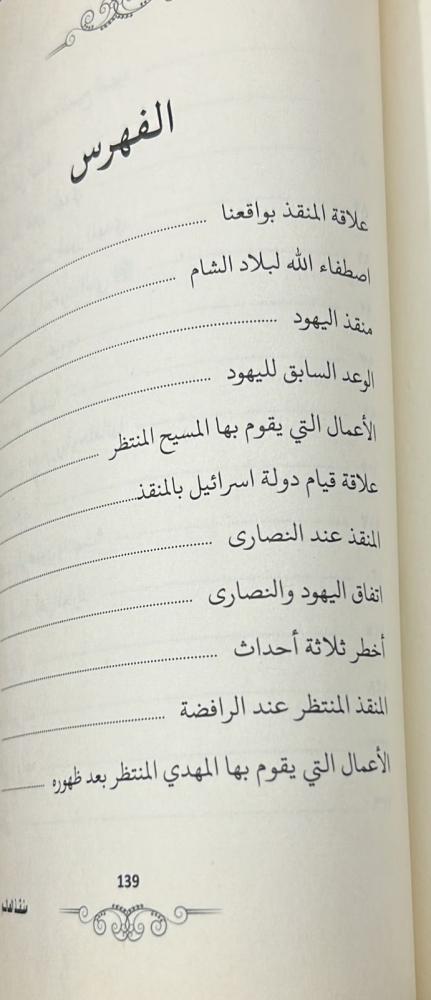 الفهرس
علاقة المنقذ بواقعنا
اصطفاء الله لبلاد الشام
منقذ اليهود
الوعد السابق لليهود
الأعمال التي يقوم بها المسيح المنتظر
علاقة قيام دولة اسرائيل بالمنقذ
المنقذ عند النصارى
اتفاق اليهود والنصارى
أخطر ثلاثة أحداث
المنقذ المنتظر عند الرافضة
الأعمال التي يقوم بها المهدي المنتظر بعد ظهوره
139